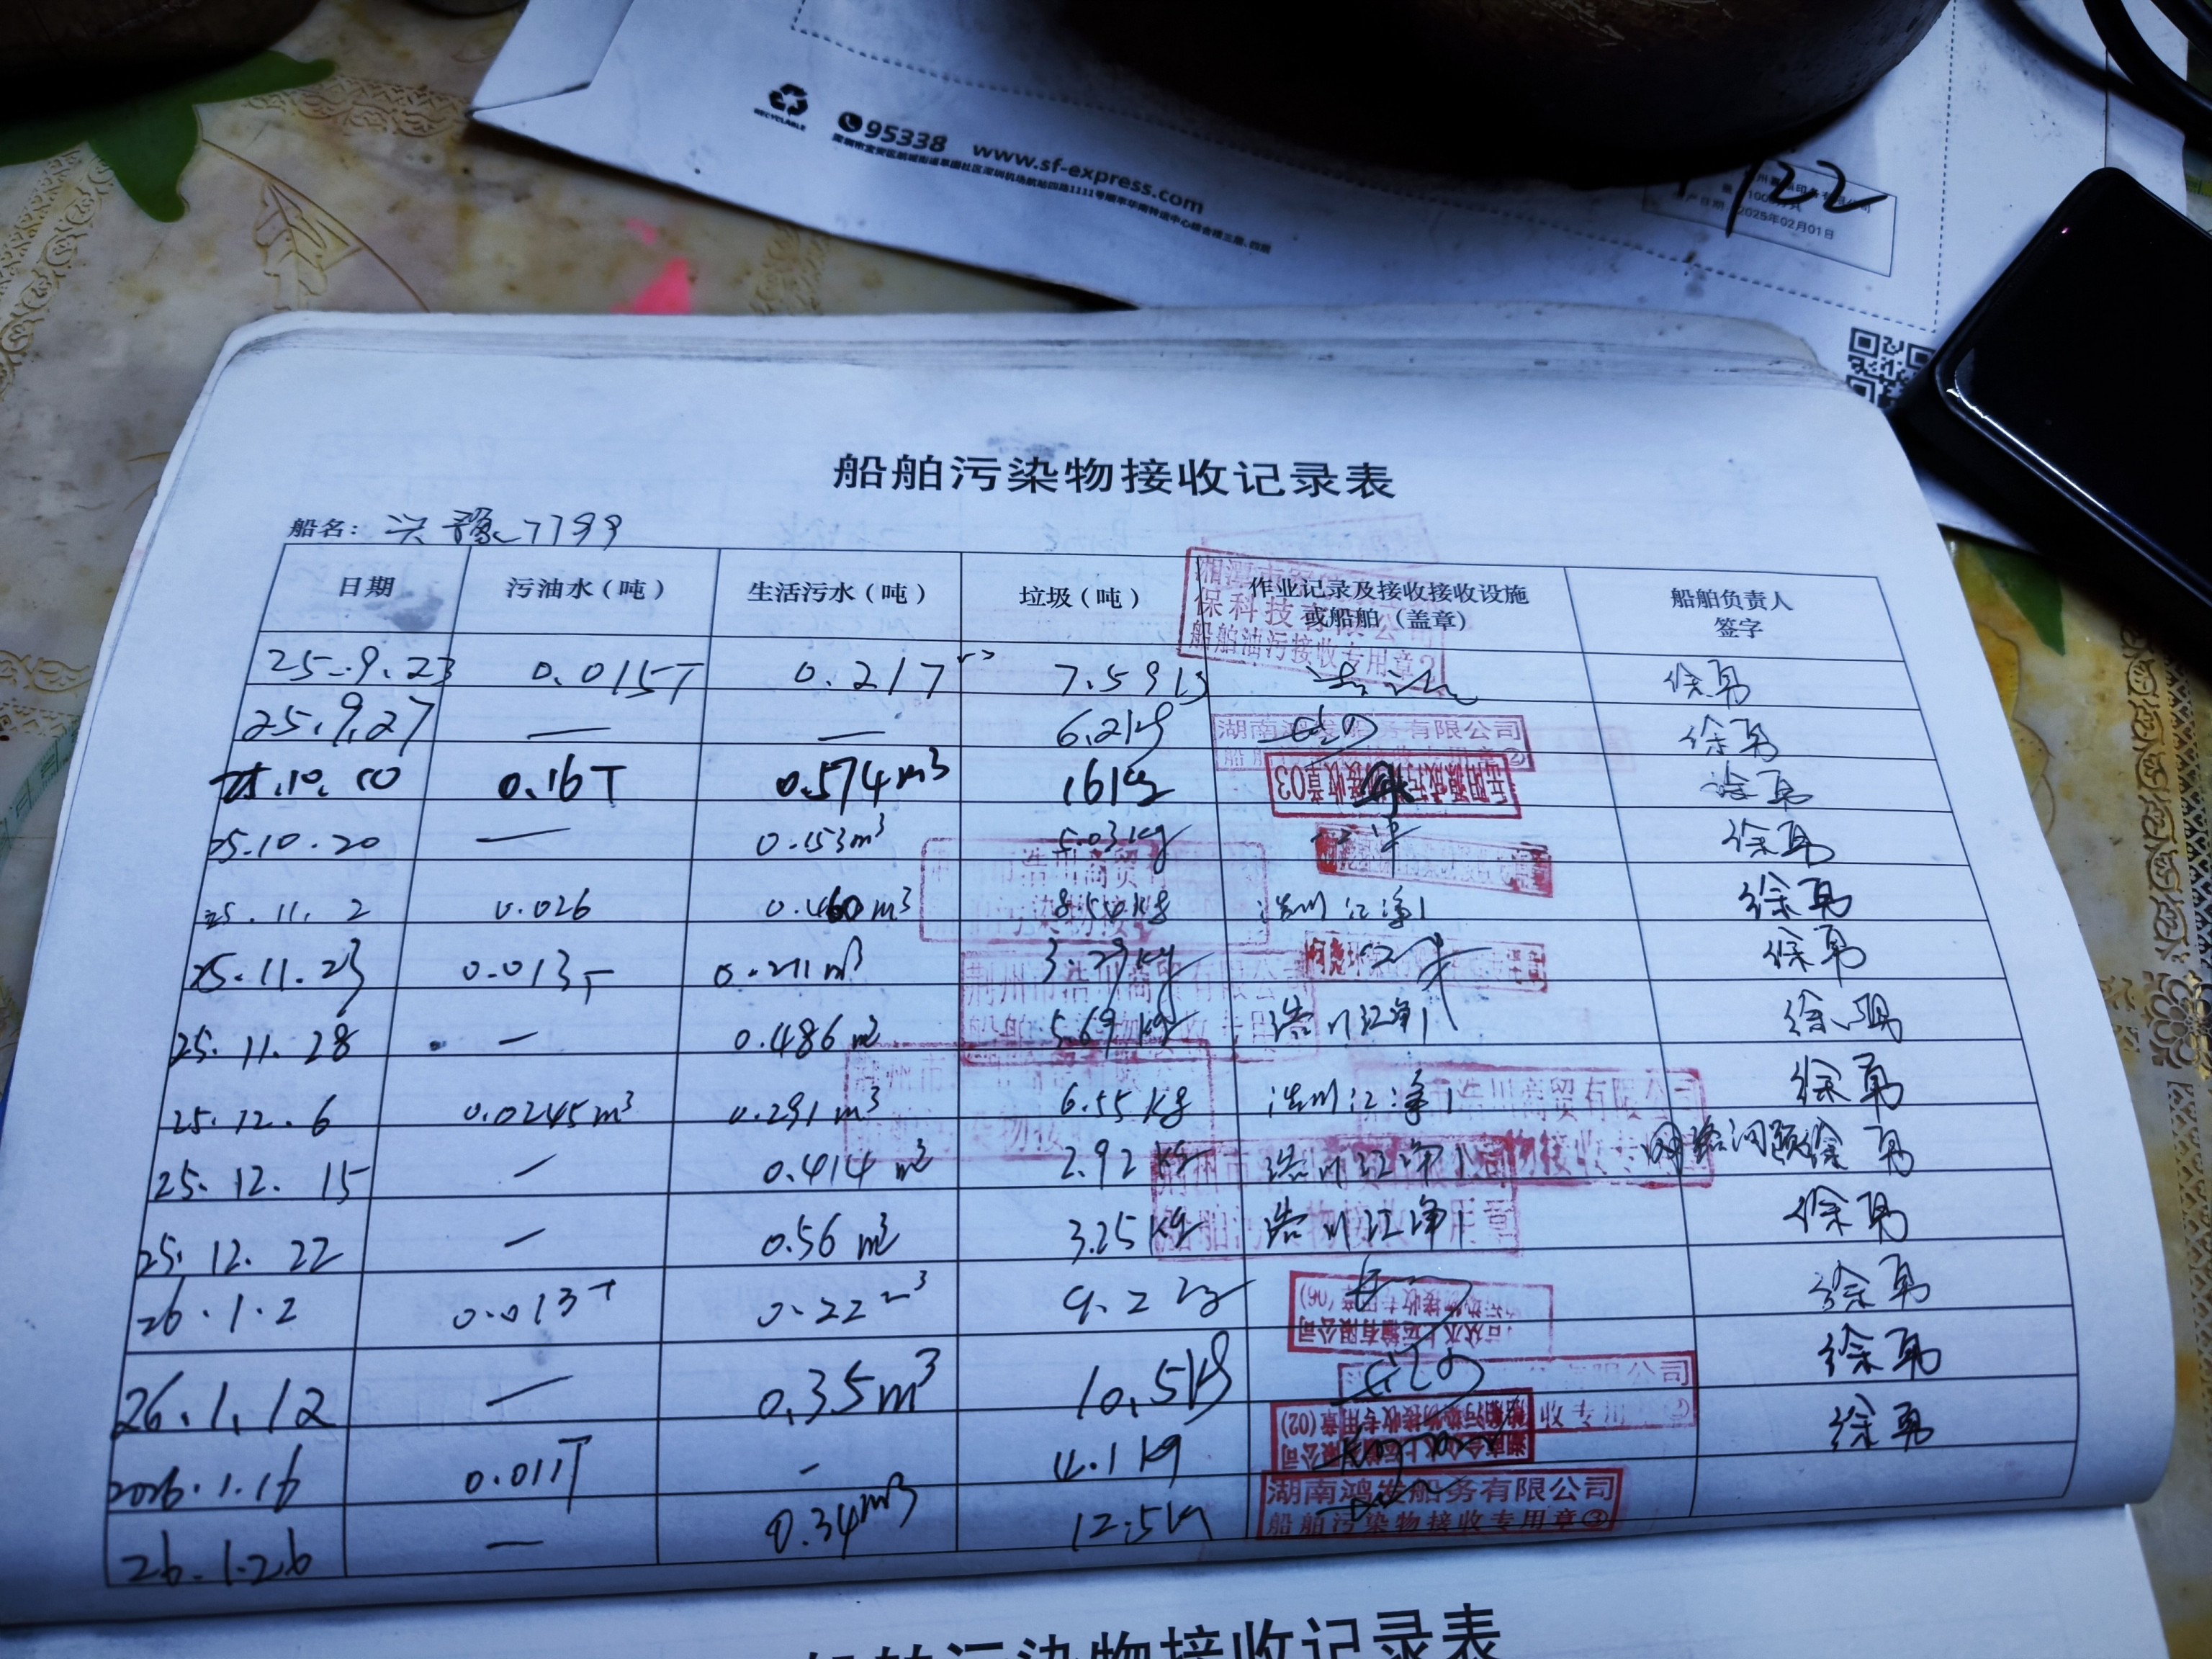 RECYCLABLE
95338 www.sf-express.com
2025年02月01日
船舶污染物接收记录表
船名： 兴豫7799
日期 污油水（吨） 生活污水（吨） 垃圾（吨） 作业记录及接收接收设施或船舶（盖章） 船舶负责人签字
保科技有限公司
船舶油污接收专用章2
25.9.23 0.015T 0.217 徐勇
25.9.27 — — 6.2kg 徐勇
湖南鸿发船务有限公司
25.10.10 0.16T 0.574m³ 161kg 徐勇
25.10.20 — 0.153m³ 5.03kg 徐勇
25.11.2 0.026 0.460m³ 8.54kg 浩川江净1 徐勇
25.11.23 0.013T 0.211m³ 3.29kg 徐勇
荆州市浩川商贸有限公司
25.11.28 — 0.486m³ 5.69kg 浩川江净1 徐勇
25.12.6 0.0245m³ 0.291m³ 6.55kg 浩川江净1 徐勇
25.12.15 — 0.414m³ 2.92kg 浩川江净1 网络问题 徐勇
25.12.22 — 0.56m³ 3.25kg 浩川江净1 徐勇
26.1.2 0.013T 0.22m³ 9.2kg 徐勇
26.1.12 — 0.35m³ 10.5kg 徐勇
2026.1.16 0.011T - 4.1kg 徐勇
26.1.26 — 0.34m³ 12.5kg
湖南鸿发船务有限公司
船舶污染物接收专用章③
船舶污染物接收记录表